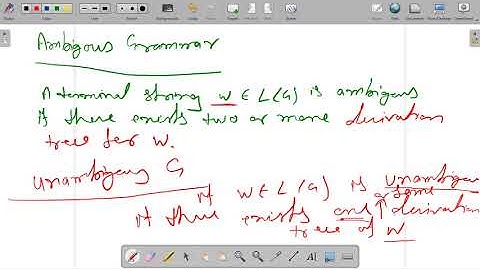 Ambigous Grammar
A terminal string w ∈ L(G) is ambigous
if there exists two or more derivation
tree for w.
unambigous G
if w ∈ L(G) is unambigous
if there exists one or same derivation
tree of w